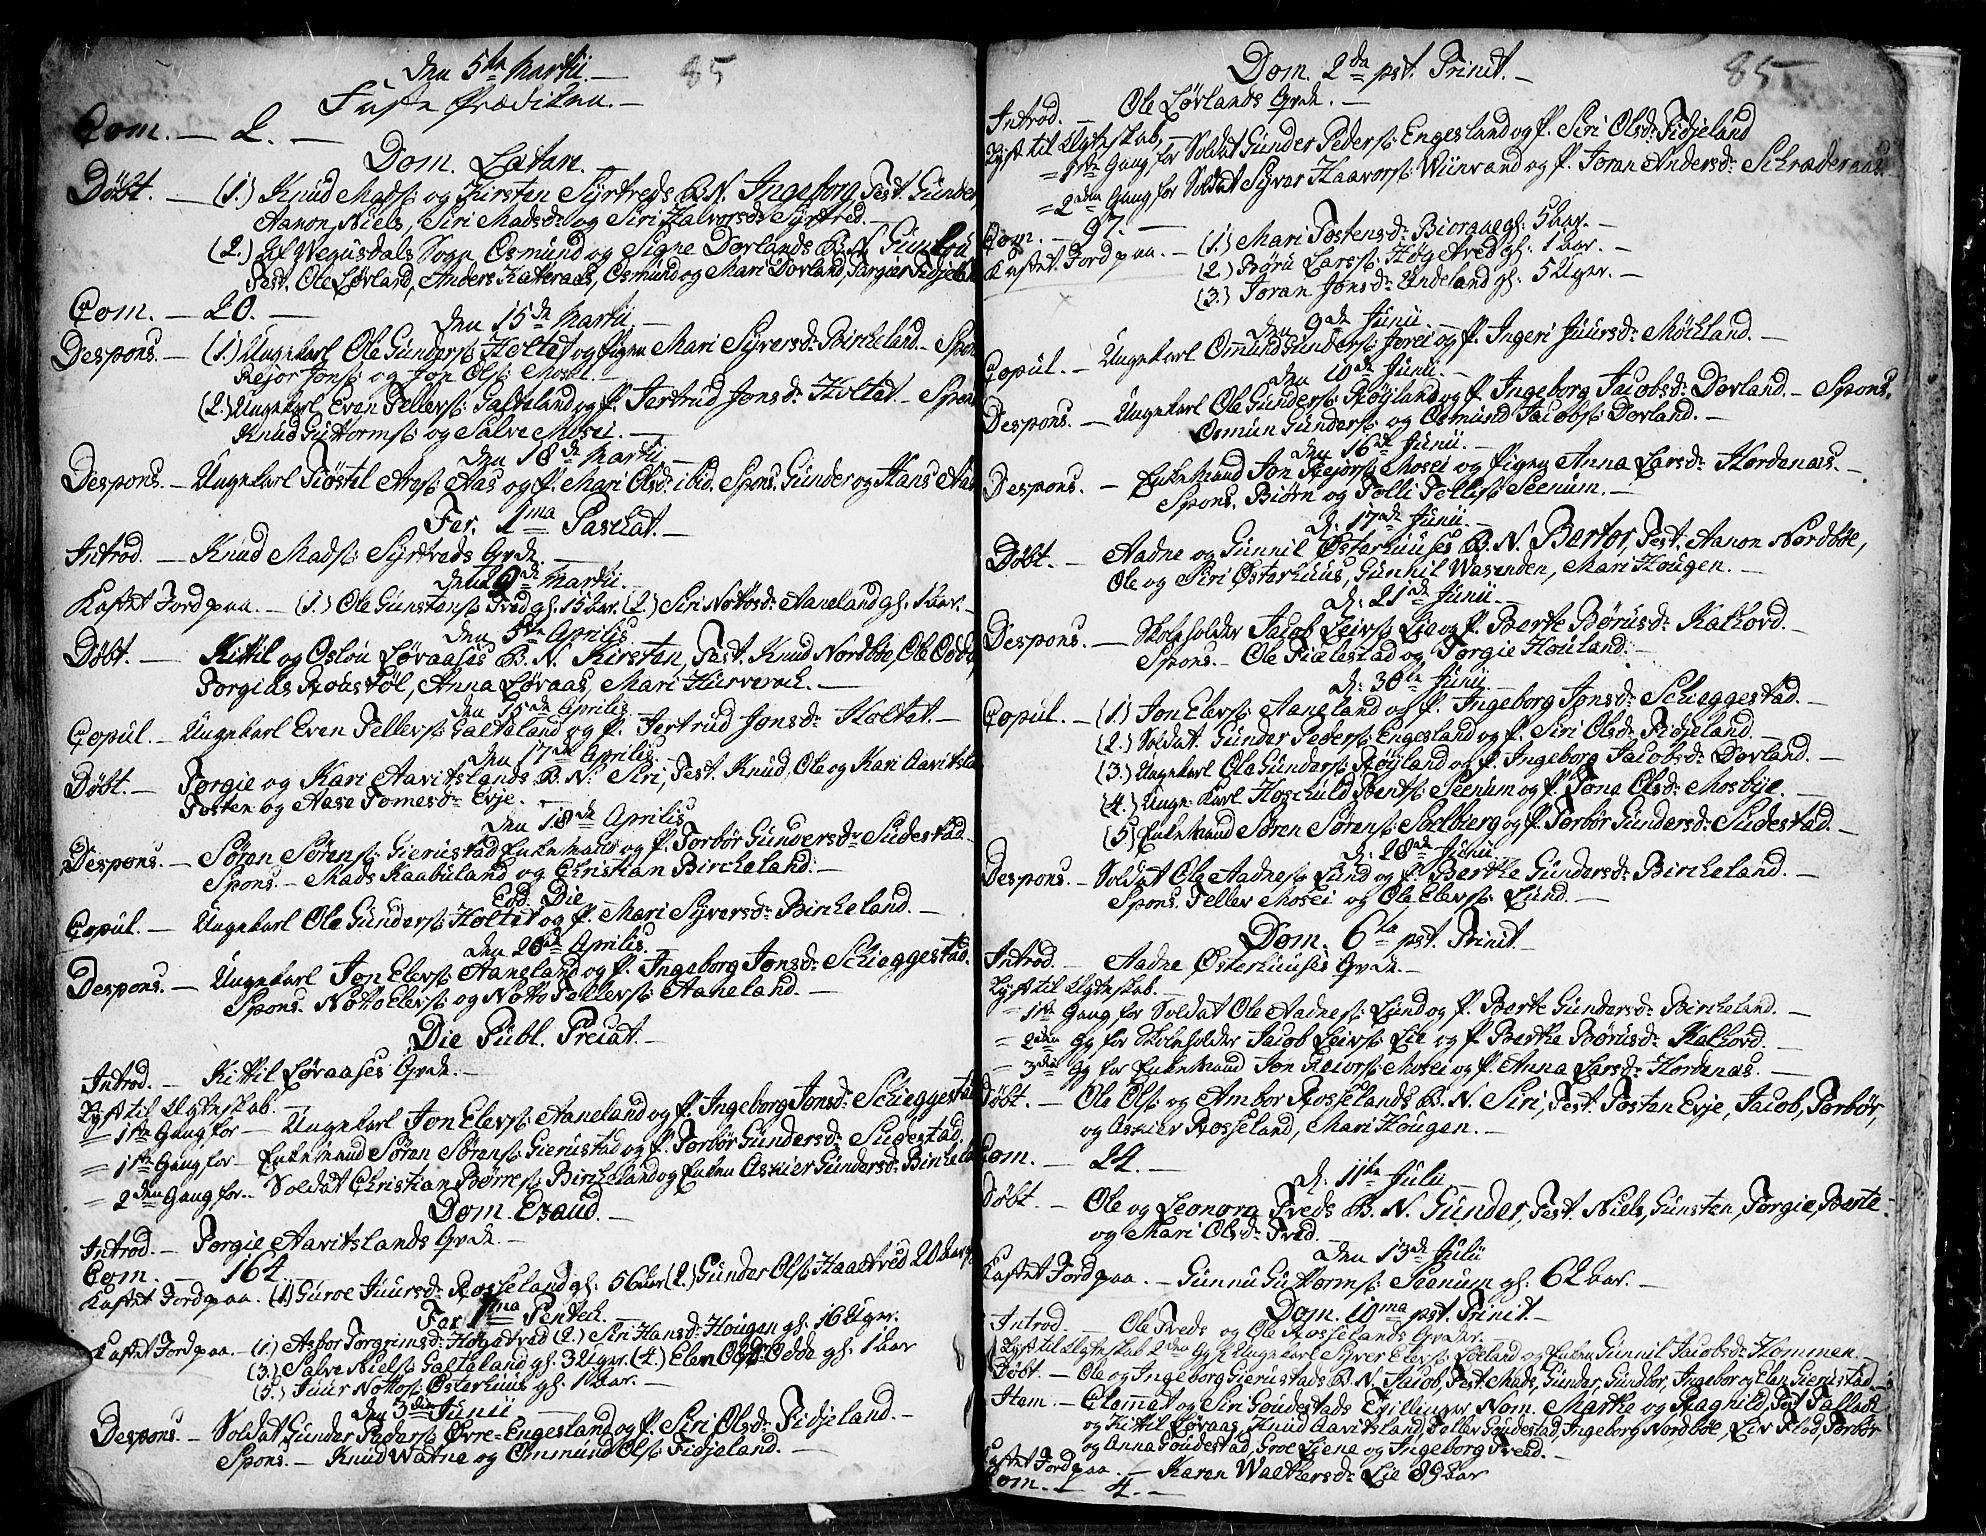 Den 5te Martii. — 85
Faste Prædiken. —
Com. — 2. —
Dom. Lætare. —
Døbt. — (1.) Knud Mads: og Kirsten Syrtveds B. N. Ingeborg, Test. Gunder
Aanon, Niels, Siri Madsd: og Siri Halvorsd: Syrtved. —
(2.) Af Wegusdals Sogn, Osmund og Signe Dovlands B. N. Gunlou
Test. Ole Løvland, Anders Katteraas, Osmund og Mari Dovland, Targier Fidjeland
Com. — 20. —
Den 15de Martii. —
Despons. — (1.) Ungekarl Ole Gunders: Holtet og Pigen Mari Syversd: Bircheland. — Spon
Rejor Jons: og Jon Ols: Mosei. —
(2.) Ungekarl Even Tellevs: Galteland og P. Jertrud Jonsd: Holtet — Spon
Knud Guttorms: og Salve Mosei. —
Den 18de Martii —
Despons. — Ungekarl Kiøstil Ares: Aas og P. Mari Olsd: ibid. Spons. Gunder og Hans Aas
Fer. 1ma Paschat. —
Introd. — Knud Mads: Syrtveds Qvde. —
Den 2de Martii. —
Kastet Jord paa. — (1.) Ole Gunstens: Tved gl: 15 Aar. (2.) Siri Nottosd: Aaneland gl: 1 Aar. —
Den 5te Aprilis.
Døbt. — Kittil og Oslou Løvaases B. N. Kirsten, Test. Knud Nordbøe, Ole Odde
Torgius Røustøl, Anna Løvaas, Mari Hurverack. —
Den 15de Aprilis.
Copul. — Ungekarl Even Tellevs: Galteland og P. Jertrud Jonsd: Holtet. —
Den 17de Aprilis.
Døbt. — Torgie og Kari Aavitslands B. N. Siri, Test. Knud, Ole og Kari Aavitsla
Tosten og Aase Tomesd: Evje. —
Den 18de Aprilis
Despons. — Søren Sørens: Gierustad Enkemand og P. Torbør Gundersd: Sudestad.
Spons. — Mads Raabuland og Christian Bircheland. —
Eod. Die —
Copul. — Ungekarl Ole Gunders: Holtet og P. Mari Syversd: Bircheland. —
Den 26de Aprilis.
Despons. — Ungekarl Jon Elevs: Aaneland og P. Ingeborg Jonsd: Schieggestad.
Spons. Notto Elevs: og Notto Tellevs: Aaneland. —
Die Publ. Precat. —
Introd. — Kittil Løvaases Qvde. —
Lyst til Ægteskab. —
= 1ste Gang for — Ungekarl Jon Elevs: Aaneland og P. Ingeborg Jonsd: Schieggestad
= 1ste Gang for — Enkemand Søren Sørens: Gierustad og P. Torbør Gundersd: Sudestad.
= 2den Gang for — Soldat Christian Børres: Bircheland og Enken Askier Gundersd: Birchela
Dom. Exaud. —
Introd. — Torgie Aavitslands Qvde. —
Com. — 164.
Kastet Jord paa. (1.) Guroe Juursd: Rosseland gl: 56 Aar (2.) Gunder Ols: Haaetved 20 Aar
Fer. 1ma Pentec.
Kastet Jord paa. — (1.) Asbor Torgrimsd: Høgetved (2.) Siri Hansd: Hougen gl: 16 Uger.
(3.) Salve Niels: Galteland gl: 3 Uger. (4.) Elen Olsd: Odde gl: 1 Aar
(5.) Juur Nottos: Østerhuus gl: 1 Aar. —
Den 3die Junii —
Despons. — Soldat Gunder Peders: Øvre-Engesland og P. Siri Olsd: Fidjeland. —
Spons. — Knud Watne og Ommund Ols: Fidjeland. —
Dom. 2da pst. Trinit. — 85
Introd. — Ole Løvlands Qvde. —
Lyst til Ægteskab, —
= 1ste Gang for Soldat Gunder Peders: Engesland og P. Siri Olsd: Fidjeland
= 2den Gang for Soldat Syver Haavors: Wiinvand og P. Joran Andersd: Schræderaas. —
Com. — 97. —
Kastet Jord paa. — (1.) Mari Tostensd: Bioraae gl: 5 Aar. —
(2.) Børu Lars: Høgetved gl: 1 Aar. —
(3.) Joran Jonsd: Undeland gl: 5 Uger. —
Den 9de Junii. —
Copul. — Ungekarl Ommund Gunders: Jorei og P. Ingeri Juursd: Møckland. —
Den 10de Junii. —
Despons. — Ungekarl Ole Gunders: Røyland og P. Ingeborg Jacobsd: Dovland. — Spons.
Osmun Gunders: og Osmund Jacobs: Dovland. —
Den 16de Junii. —
Despons. — Enkemand Jon Rejors: Mosei og Pigen Anna Larsd: Hordenæs. —
Spons. Biørn og Tolli Tellis: Seenum. —
D. 17de Junii. —
Døbt. — Aadne og Gunnil Østerhuuses B. N. Bertor, Test. Aanon Nordbøe,
Ole og Siri Østerhuus, Gunhil Wasenden, Mari Hougen. —
D. 21de Junii. —
Despons. — Skoleholder Jacob Leivs: Lie og P. Berte Børusd: Katkord. —
Spons. — Ole Fielestad og Torgie Houland. —
D. 30te Junii. —
Copul. — (1.) Jon Elevs: Aaneland og P. Ingeborg Jonsd: Schieggestad. —
(2.) Soldat Gunder Peders: Engesland og P. Siri Olsd: Fidjeland. —
(3.) Ungekarl Ole Gunders: Røyland og P. Ingeborg Jacobsd: Dovland. —
(4.) Unge Karl Hoschuld Bents: Seenum og P. Tona Olsd: Mosbye. —
(5.) Enkemand Søren Sørens: Soelberg og P. Torbør Gundersd: Sudestad. —
D. 28de Junii.
Despons. — Soldat Ole Aadnes: Lund og P. Berthe Gundersd: Bircheland. —
Spons. Tellev Mosei og Ole Elevs: Lund. —
Dom. 6ta pst. Trinit. —
Introd. — Aadne Østerhuuses Qvde. —
Lyst til Ægteskab. —
= 1ste Gang for Soldat Ole Aadnes: Lund og P. Berte Gundersd: Bircheland. —
= 2den Gg for Skoleholder Jacob Leivs: Lie og P. Berthe Børusd: Katkord. —
= 3die Gg for Enkemand Jon Reiors: Mosei og P. Anna Larsd: Hordenæs. —
Døbt. — Ole Ols: og Ambor Rosselands B. N. Siri, Test. Tosten Evje, Jacob, Torbør,
og Askier Rosseland, Mari Hougen. —
Com. — 24. —
D. 11te Julii
Døbt. — Ole og Leonora Tveds B. N. Gunder, Test. Niels, Gunsten, Torgie, Berte
og Mari Olsd: Tved. —
Den 13de Julii
Kastet Jord paa. — Gunnu Guttorms: Seenum gl: 62 Aar. —
Dom. 10ma pst. Trinit. —
Introd. — Ole Tveds og Ole Rosselands Qvder. —
Lyst til Ægteskab 2den Gg for Ungekarl Syver Elevs: Loeland og Enken Gunnil Jacobsd: Hommen. —
Døbt. — Ole og Ingeborg Gierustads B. N. Jacob, Test. Mads, Gunder, Gundbor, Ingebor og Elen Gierustad. —
Item. — Clommet og Siri Goudestads Tvillinger Nom. Marthe og Ragnild, Test. Tallak
og Kittil Løvaas, Knud Aavitsland, Tellev Goudestad, Ingeborg Nordbøe, Liv Flod, Torbør
og Anna Goudestad, Groe Liene og Ingeborg Tved. —
Kastet Jord paa. — Karen Walthersd: Lie 89 Aar
Com. — 4. —